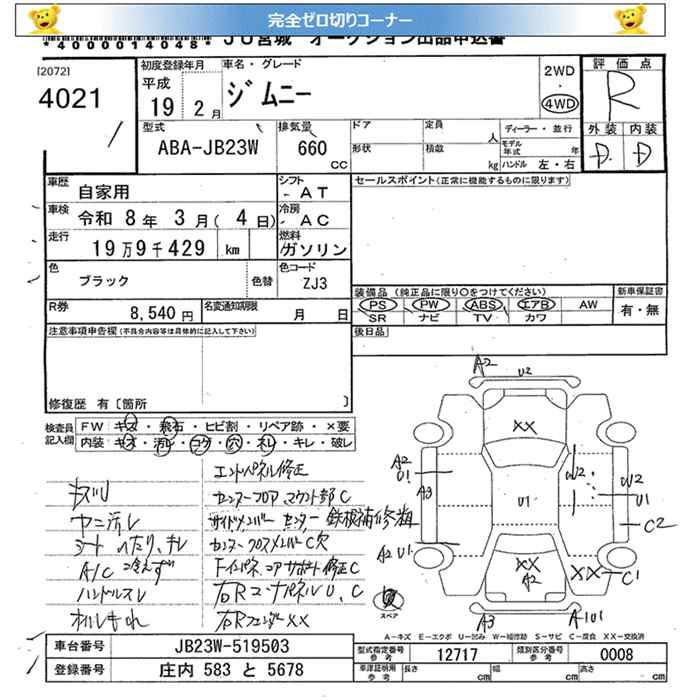 完全ゼロ切りコーナー
*4000014048* JU宮城 オークション出品申込書
[2072]
4021
初度登録年月
平成
19 2月
車名・グレード
ジムニー
2WD
・
4WD
評価点
R
外装 内装
D D
型式
ABA-JB23W
排気量
660
CC
ドア
形状
定員 人
積載 kg
ディーラー・並行
モデル年式 年
ハンドル 左・右
車歴
自家用
シフト
AT
車検
令和 8年 3月(4日)
冷房
AC
走行
19万9千429 km
燃料
ガソリン
色
ブラック
色替
色コード
ZJ3
R券
8,540円
名変通知期限
月 日
セールスポイント(正常に機能するものに限ります)
装備品(純正品に限り○をつけてください)
新車保証書
PS PW ABS エアB AW
SR ナビ TV カワ
有・無
後日品
注意事項申告欄(不具合内容等は具体的に記入して下さい)
修復歴 有〔箇所 〕
検査員
記入欄
FW キズ・飛石・ヒビ割・リペア跡・×要
内装 キズ・汚レ・コゲ・穴・スレ・キレ・破レ
キズU
ヤニ汚レ
シート へたり、キレ
A/C 冷えず
ハンドルスレ
エンドパネル修正
センターフロア マウント部C
サイドメンバー センター 鉄板補修雑
センタークロスメンバーC穴
右RコーナパネルU、C
右RフェンダーXX
A2
U2
XX
A2
U1
A3
W2
W2
U1
U1
C2
A2 U1
XX
A2
XX C1
スペア
A3
A1U1
A-キズ E-エクボ U-凹み W-補修跡 S-サビ C-腐食 XX-交換済
車台番号 JB23W-519503
型式指定番号
参考
12717
類別区分番号
参考
0008
登録番号 庄内 583 と 5678
車庫証明用
参考
長さ cm 幅 cm 高さ cm